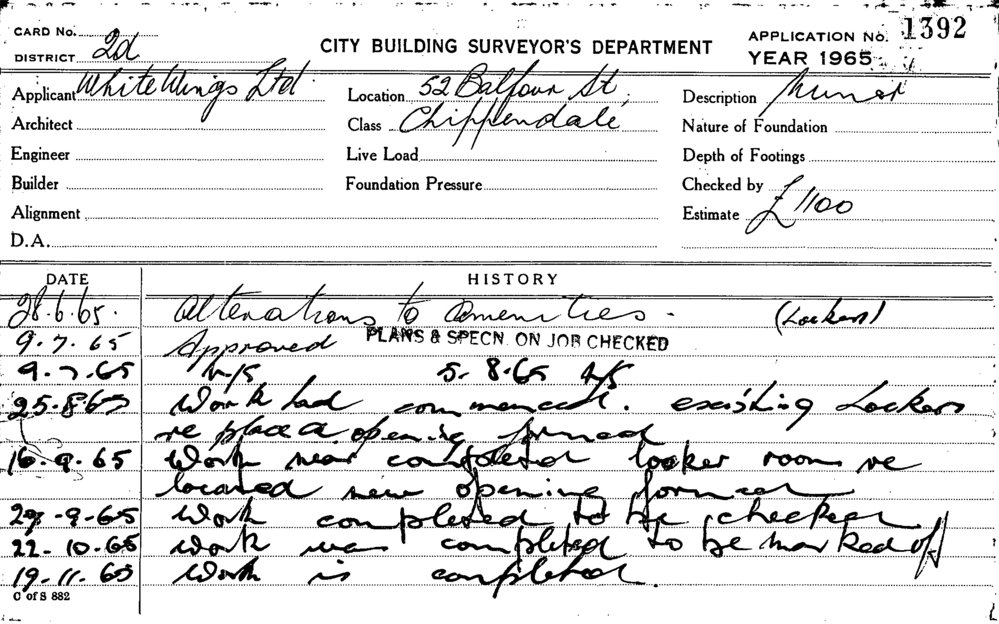 CARD No.
DISTRICT 2d
CITY BUILDING SURVEYOR'S DEPARTMENT
APPLICATION No. 1392
YEAR 1965
Applicant White Wings Ltd.
Location 52 Balfour St,
Description Minor
Architect
Class Chippendale
Nature of Foundation
Engineer
Live Load
Depth of Footings
Builder
Foundation Pressure
Checked by
Alignment
Estimate £1100
D.A.
DATE
HISTORY
28.6.65. Alterations to Amenities. (Lockers)
9.7.65 Approved PLANS & SPECN. ON JOB CHECKED
9.7.65 N/S 5.8.65 N/S
25.8.65 Work had commenced. existing Lockers
re place a opening formed
16.9.65 Work near completed locker room re
located new opening formed
29-9-65 Work completed to be checked
22-10.65 Work was completed to be marked off
19.11.65 Work is completed.
C of S 882